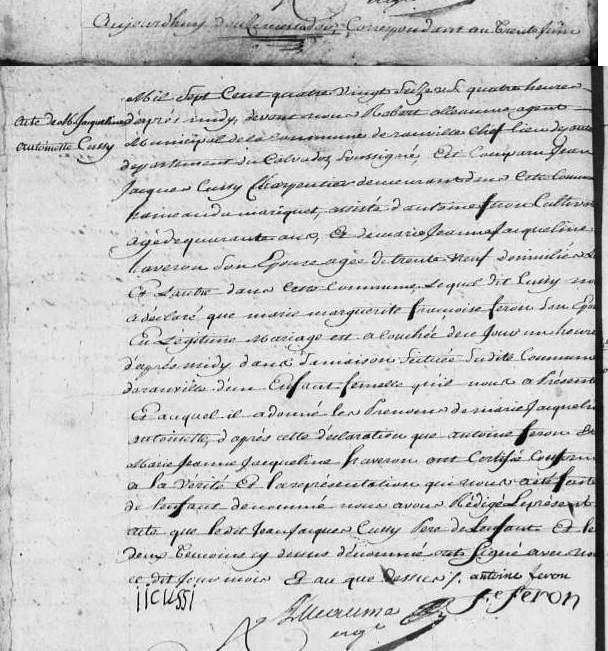 Aujourdhuy douze messidor Correspondant au Trente Juin
Mil Sept Cent quatre Vingt Seize quatre heures
acte de Ms Jacqueline
Antoinette Cussy
d'après midy, devant nous Robert alleaume agent
Municipal de la Commune de ranville Chef lieu de
departement du Calvados Soussigné, Est Comparu Jean
Jacques Cussy Charpentier demeurant dans Cette Commune
hameau du mariquet, assisté d'antoine feron Cultiv
agé de quarante ans, Et de marie Jeanne Jacqueline
haveron Son Epouse agée de trente neuf domiciliés
Et L'autre dans Cette Commune Lequel dit Cussy no
a déclaré que marie marguerite francoise feron Son Epou
En Légitime Mariage est acouchée de ce Jour un heure
d'après midy dans Sa maison Scituée Sudite Commune
de ranville d'un Enfant femelle qu'il nous a Présenté
Et auquel il a donné les Prenoms de marie Jacqueline
antoinette, d'après cette déclaration que antoine feron Et
Marie Jeanne Jacqueline haveron ont Certifié Conform
a la Vérité Et la représentation qui nous a été faite
de l'enfant denommé nous avons Rédigé Le présent
acte que le dit Jean Jacques Cussy Pere de l'enfant Et le
deux Temoins cy dessus dénommé ont Signé avec nou
ce dit Jour mois Et an que dessus /. antoine feron
jjcussi
alleaume
agt
feron